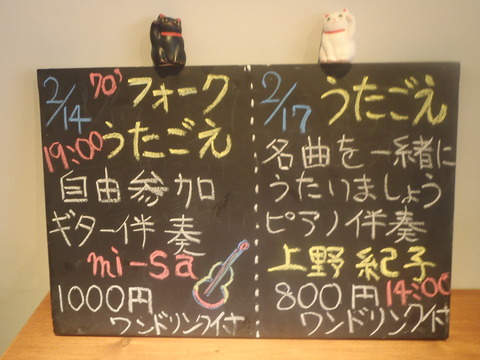 2/14 70' フォーク
19:00 うたごえ
自由参加
ギター伴奏
mi-sa
1000円
ワンドリンク付
2/17 うたごえ
名曲を一緒に
うたいましょう
ピアノ伴奏
上野紀子
800円 14:00
ワンドリンク付